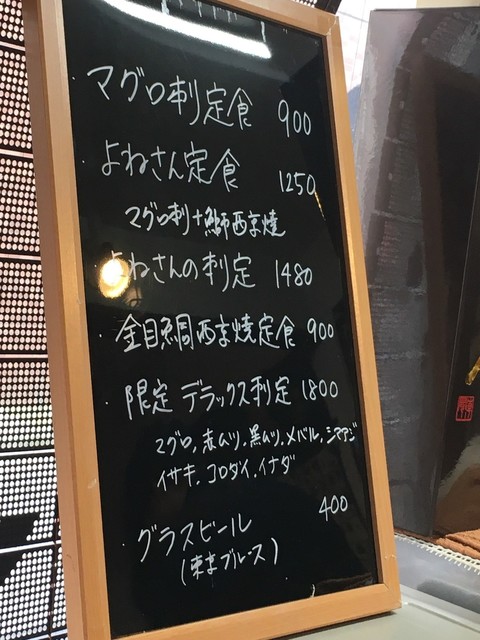 ・マグロ刺定食 900
・よねさん定食 1250
マグロ刺+鰤西京焼
・よねさんの刺定 1480
・金目鯛西京焼定食 900
・限定デラックス刺定 1800
マグロ,赤ムツ,黒ムツ,メバル,シマアジ
イサキ,コロダイ,イナダ
・グラスビール 400
(東京ブルース)